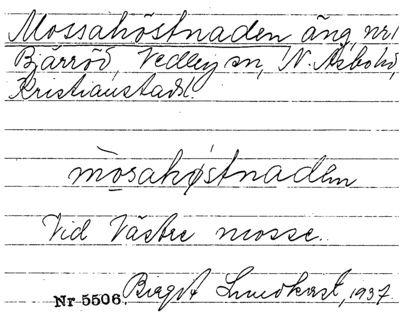 Mossahöstnaden äng, nr 1
Bjärröd, Vedby sn, N. Åsbo hd,
Kristianstads l.
mosahøstnaden
Vid Västre mosse.
Nr 5506. Birgit Lundkvist, 1937.